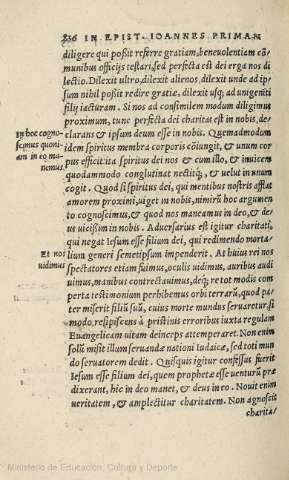 236 IN EPIST. IOANNES PRIMAM
diligere qui possit referre gratiam, beneuolentiam cō-
munibus officijs testari, sed perfecta est dei erga nos di
lectio. Dilexit ultro, dilexit alienos, dilexit unde ad ip-
sum nihil possit redire gratiæ, dilexit usq; ad unigeniti
filij iacturam. Si nos ad consimilem modum diligimus
proximum, tunc perfecta dei charitas est in nobis, de-
In hoc cogno-
scimus quoni-
am in eo ma-
nemus.
clarans & ipsum deum esse in nobis. Quemadmodum
idem spiritus membra corporis coniungit, & unum cor
pus efficit: ita spiritus dei nos & cum illo, & inuicem
quodammodo conglutinat nectitq;, & uelut in unum
cogit. Quod si spiritus dei, qui mentibus nostris afflat
amorem proximi, uiget in nobis, nimirū hoc argumen
to cognoscimus, & quod nos maneamus in deo, & de-
us uicissim in nobis. Aduersarius est igitur charitati,
qui negat Iesum esse filium dei, qui redimendo morta-
Et nos
uidimus
lium generi semetipsum impenderit. At huius rei nos
spectatores etiam fuimus, oculis uidimus, auribus audi
uimus, manibus contrectauimus, deq; re tot modis com
perta testimonium perhibemus orbi terrarū, quod pa-
ter miserit filiū suū, cuius morte mundus seruaretur, si
modo resipiscens à pristinis erroribus iuxta regulam
Euangelicam uitam deinceps attemperaret. Non enim
solū misit illum seruandæ nationi Iudaicæ, sed toti mun
do seruatorem dedit. Quisquis igitur confessus fuerit
Iesum esse filium dei, quem prophetæ esse uenturū præ
dixerant, hic in deo manet, & deus in eo. Nouit enim
ueritatem, & amplectitur charitatem. Non agnoscit
charita/
Ministerio de Educación, Cultura y Deporte